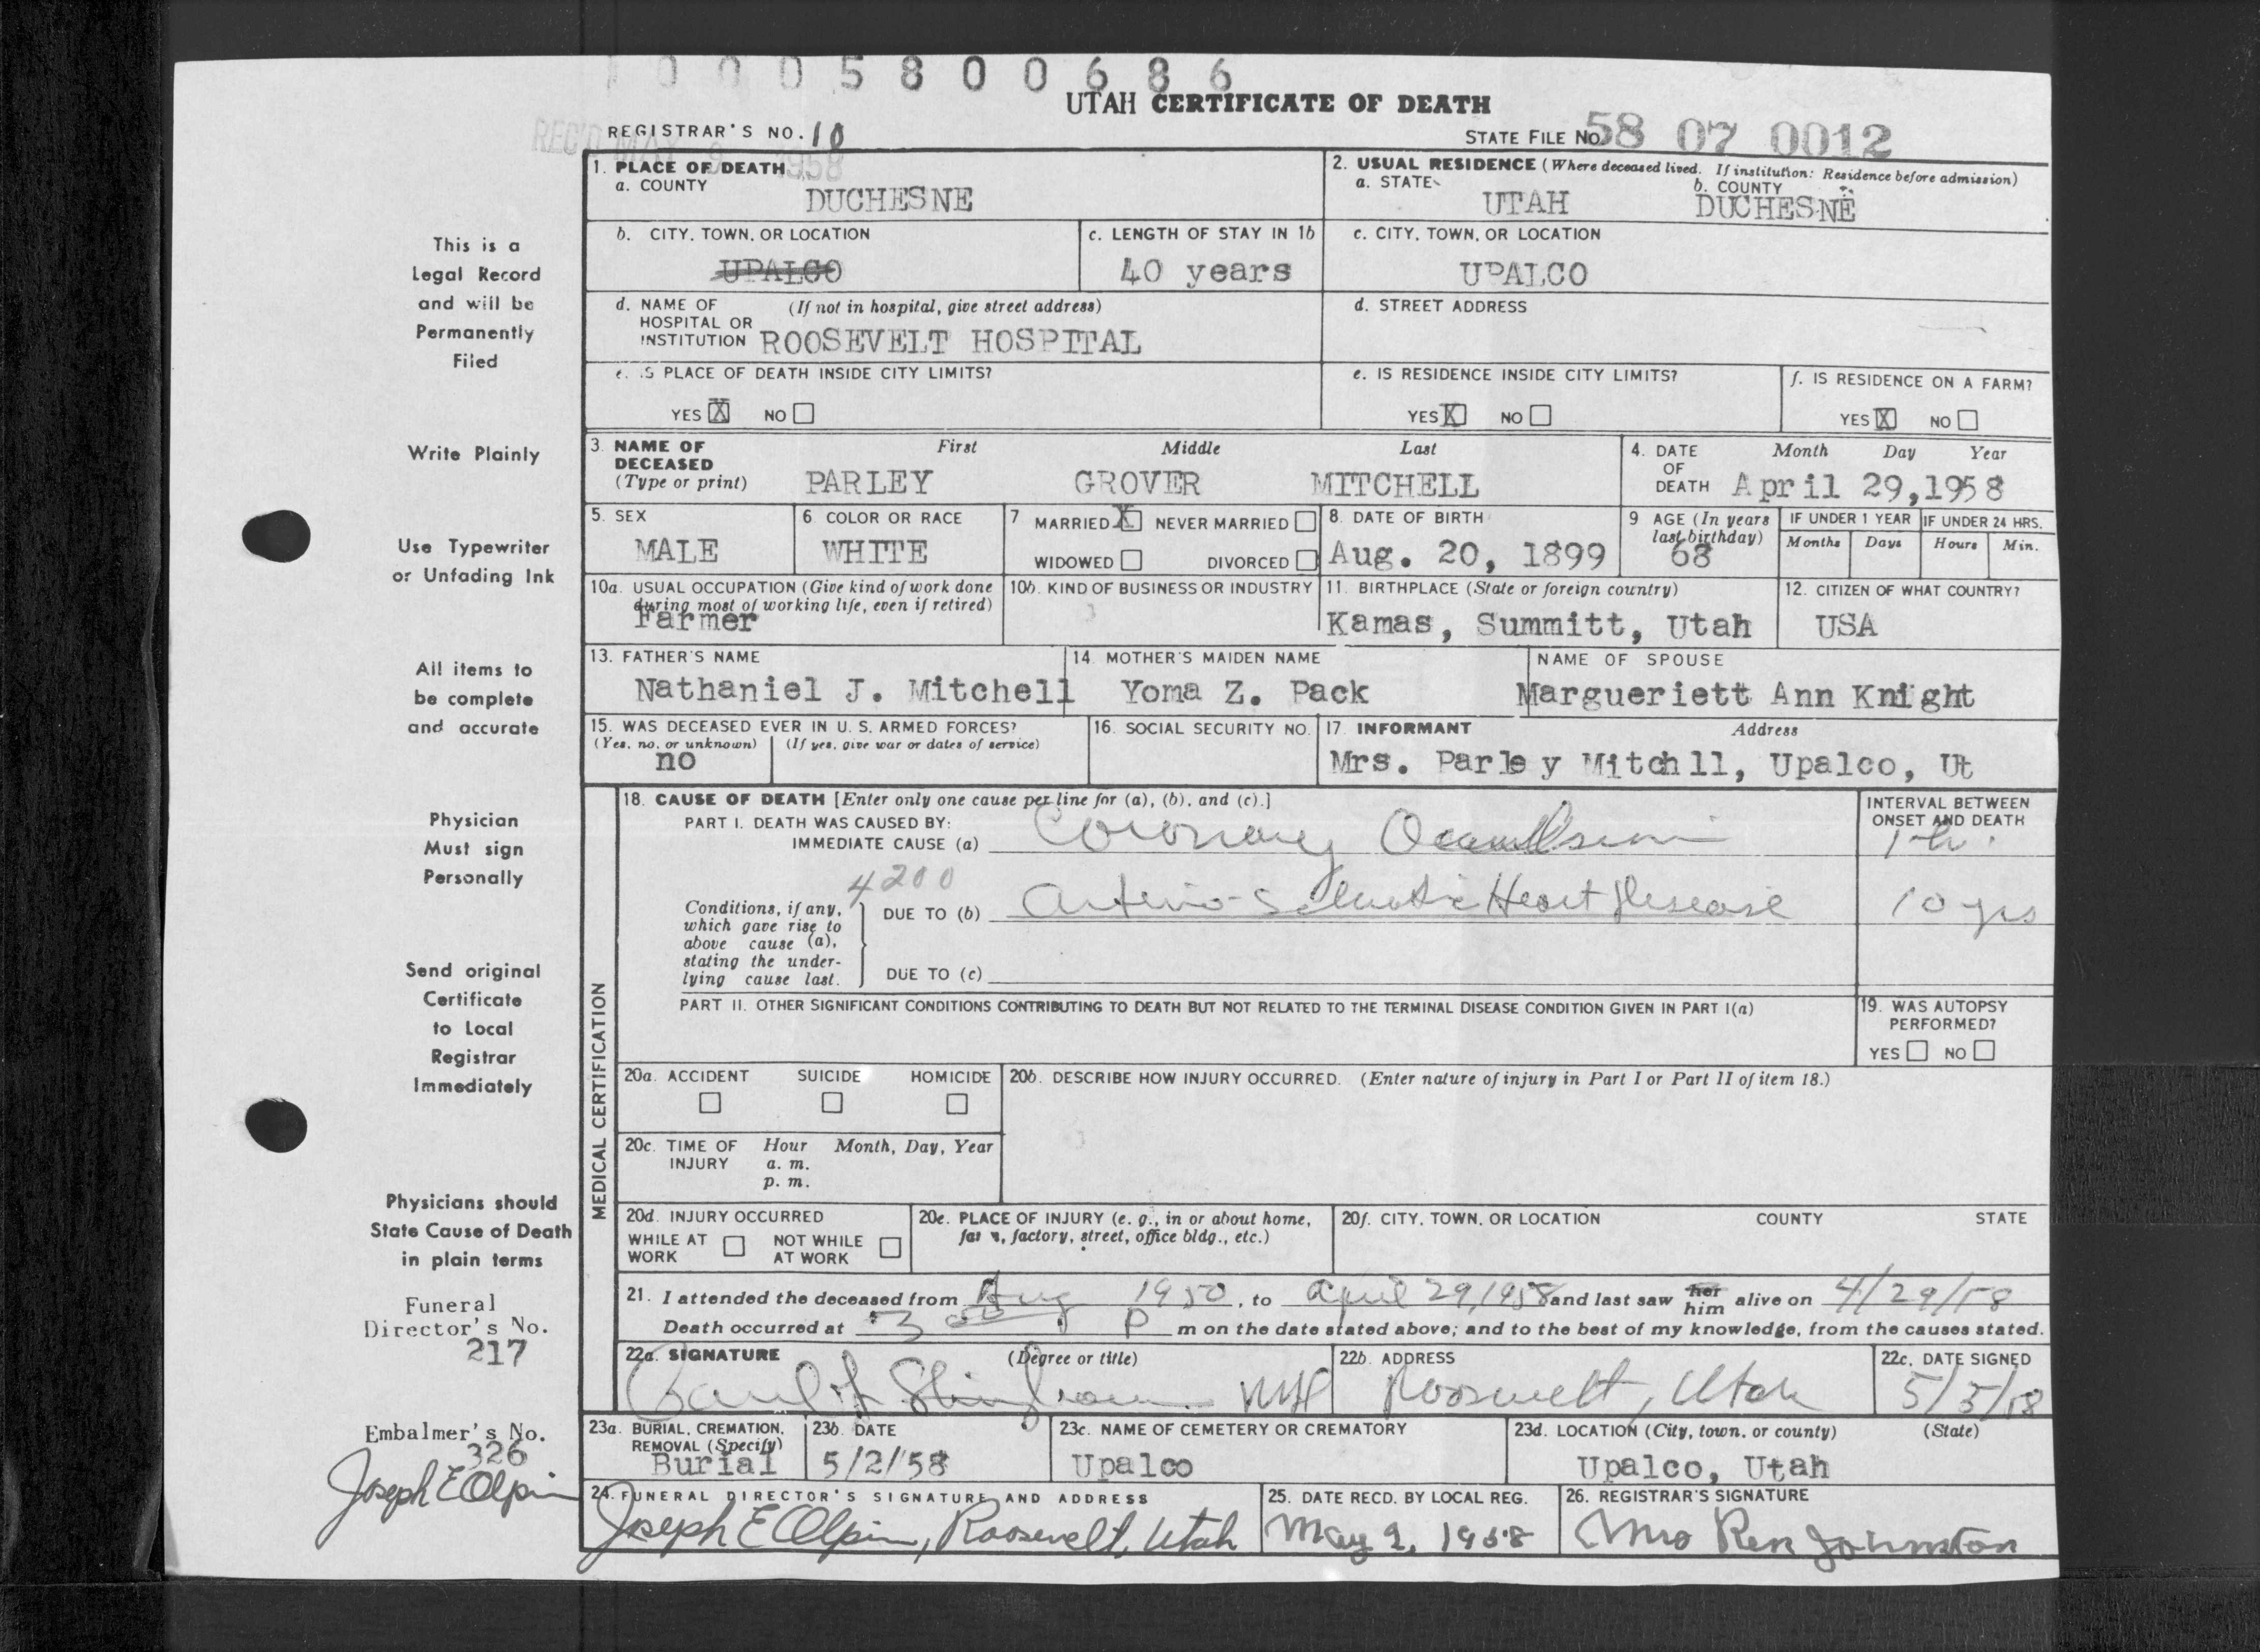 0 0 0 5 8 0 0 6 8 6
UTAH CERTIFICATE OF DEATH
REGISTRAR'S NO. 10
STATE FILE NO. 58 07 0012
REC'D MAY 9 1958
1. PLACE OF DEATH
a. COUNTY
DUCHESNE
2. USUAL RESIDENCE (Where deceased lived. If institution: Residence before admission)
a. STATE
UTAH
b. COUNTY
DUCHESNE
This is a
Legal Record
and will be
Permanently
Filed
b. CITY, TOWN, OR LOCATION
UPALCO
c. LENGTH OF STAY IN 1b
40 years
c. CITY, TOWN, OR LOCATION
UPALCO
d. NAME OF (If not in hospital, give street address)
HOSPITAL OR
INSTITUTION ROOSEVELT HOSPITAL
d. STREET ADDRESS
e. IS PLACE OF DEATH INSIDE CITY LIMITS?
YES X NO
e. IS RESIDENCE INSIDE CITY LIMITS?
YES X NO
f. IS RESIDENCE ON A FARM?
YES X NO
Write Plainly
3. NAME OF DECEASED
(Type or print)
First Middle Last
PARLEY GROVER MITCHELL
4. DATE OF DEATH
Month Day Year
April 29, 1958
Use Typewriter
or Unfading Ink
5. SEX
MALE
6 COLOR OR RACE
WHITE
7 MARRIED X NEVER MARRIED
WIDOWED DIVORCED
8. DATE OF BIRTH
Aug. 20, 1899
9 AGE (In years
last birthday)
68
IF UNDER 1 YEAR
Months Days
IF UNDER 24 HRS.
Hours Min.
10a. USUAL OCCUPATION (Give kind of work done
during most of working life, even if retired)
Farmer
10b. KIND OF BUSINESS OR INDUSTRY
11. BIRTHPLACE (State or foreign country)
Kamas, Summitt, Utah
12. CITIZEN OF WHAT COUNTRY?
USA
All items to
be complete
and accurate
13. FATHER'S NAME
Nathaniel J. Mitchell
14. MOTHER'S MAIDEN NAME
Yoma Z. Pack
NAME OF SPOUSE
Margueriett Ann Knight
15. WAS DECEASED EVER IN U. S. ARMED FORCES?
(Yes, no, or unknown) (If yes, give war or dates of service)
no
16. SOCIAL SECURITY NO.
17. INFORMANT Address
Mrs. Parley Mitchll, Upalco, Ut
Physician
Must sign
Personally
MEDICAL CERTIFICATION
18. CAUSE OF DEATH [Enter only one cause per line for (a), (b), and (c).]
PART I. DEATH WAS CAUSED BY:
IMMEDIATE CAUSE (a) Coronary Occulsion
INTERVAL BETWEEN
ONSET AND DEATH
1 hr.
4200
Conditions, if any,
which gave rise to
above cause (a),
stating the under-
lying cause last.
DUE TO (b) Arterio-Sclerotic Heart Disease
10 yrs
DUE TO (c)
Send original
Certificate
to Local
Registrar
Immediately
PART II. OTHER SIGNIFICANT CONDITIONS CONTRIBUTING TO DEATH BUT NOT RELATED TO THE TERMINAL DISEASE CONDITION GIVEN IN PART I(a)
19. WAS AUTOPSY
PERFORMED?
YES NO
20a. ACCIDENT SUICIDE HOMICIDE
20b. DESCRIBE HOW INJURY OCCURRED. (Enter nature of injury in Part I or Part II of item 18.)
20c. TIME OF INJURY
Hour Month, Day, Year
a. m.
p. m.
Physicians should
State Cause of Death
in plain terms
20d. INJURY OCCURRED
WHILE AT WORK NOT WHILE AT WORK
20e. PLACE OF INJURY (e. g., in or about home,
farm, factory, street, office bldg., etc.)
20f. CITY, TOWN, OR LOCATION COUNTY STATE
21. I attended the deceased from Aug 1950, to April 29, 1958 and last saw her him alive on 4/29/58
Death occurred at 3 00 P m on the date stated above; and to the best of my knowledge, from the causes stated.
Funeral
Director's No.
217
22a. SIGNATURE (Degree or title)
22b. ADDRESS
Roosevelt, Utah
22c. DATE SIGNED
5/5/58
Embalmer's No.
326
Joseph E Olpin
23a. BURIAL, CREMATION,
REMOVAL (Specify)
Burial
23b. DATE
5/2/58
23c. NAME OF CEMETERY OR CREMATORY
Upalco
23d. LOCATION (City, town, or county) (State)
Upalco, Utah
24. FUNERAL DIRECTOR'S SIGNATURE AND ADDRESS
Joseph E Olpin, Roosevelt, Utah
25. DATE RECD. BY LOCAL REG.
May 2, 1958
26. REGISTRAR'S SIGNATURE
Mrs Ren Johnston